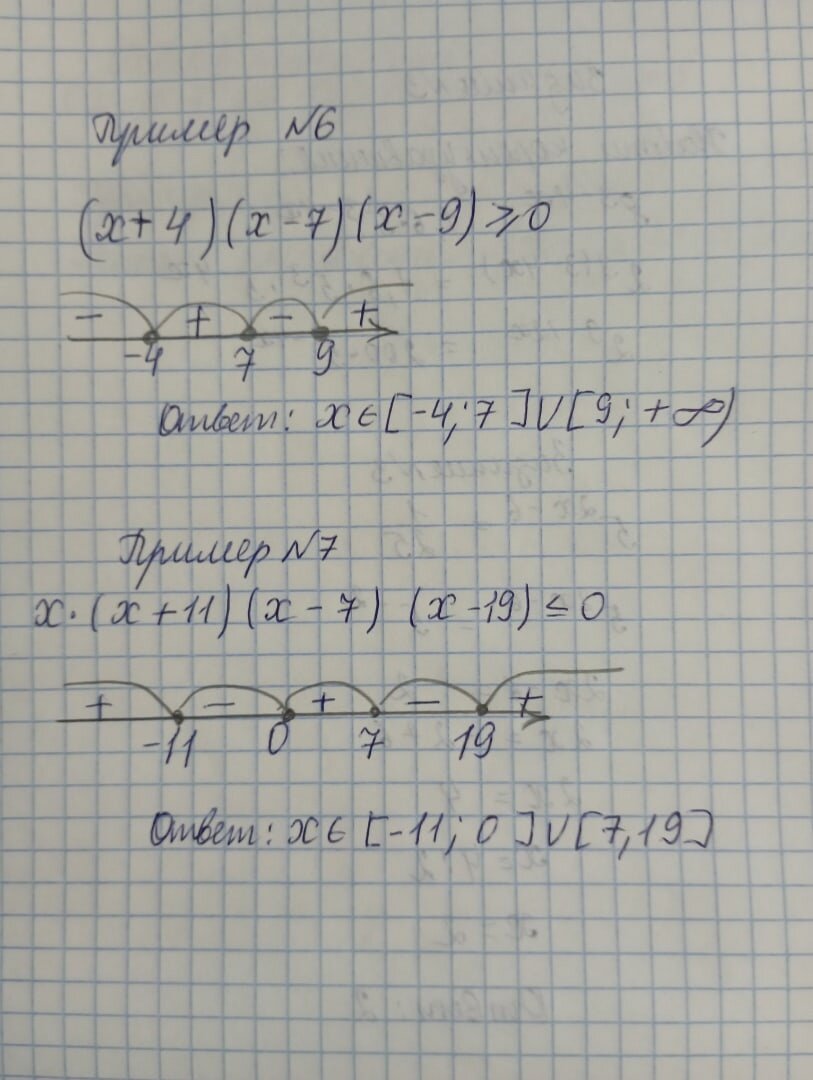 Пример N6
(x+4)(x-7)(x-9)≥0
- + - +
-4 7 9
Ответ: x∈[-4;7]∪[9;+∞)
Пример N7
x·(x+11)(x-7) (x-19)≤0
+ - + - +
-11 0 7 19
Ответ: x∈[-11;0]∪[7,19]